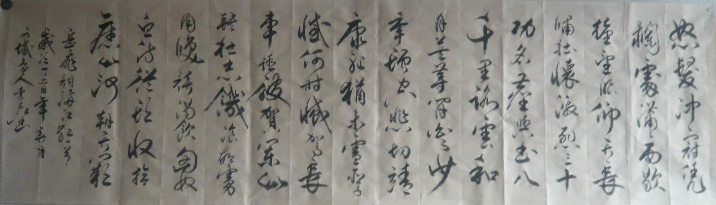 怒髮冲冠凭
闌處瀟雨歇
望眼仰天長
嘯壯懷激烈三十
功名塵與土八
千里路雲和
月莫等閒白了少
年頭空悲切靖
康恥猶未雪臣子
恨何時滅駕長
車踏破賀蘭山
缺壯志饑餐胡虜
肉笑談渴飲匈奴
血待從頭收拾
舊山河朝天闕
岳飛詞滿江紅
歲次年